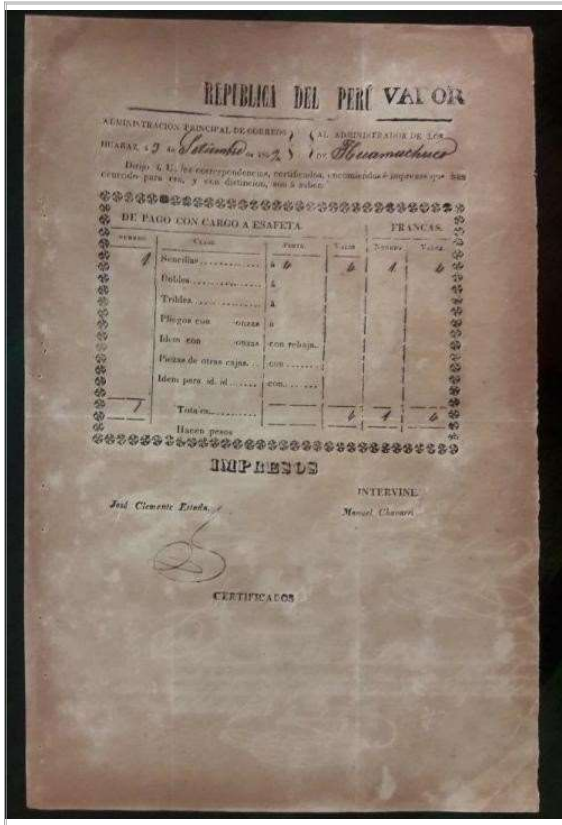 REPUBLICA DEL PERÚ VAPOR
ADMINISTRACION PRINCIPAL DE CORREOS AL ADMINISTRADOR DE LOS
HUARAZ, á 9 de Setiembre de DE Huamachuco
Dirijo á U. las correspondencias, certificados, encomiendas é impresos que han
conocido para esa, y con distincion, son á saber:
DE PAGO CON CARGO A ESAFETA. FRANCAS.
NUMERO. CLASE. PORTE. VALOR NUMERO. VALOR.
1 Sencillas............ á 4 4 1 4
Dobles............ á
Tribles............ á
Pliegos con onzas á
Idem con onzas con rebaja.
Piezas de otras cajas... con.......
Idem para id. id....... con.......
1 Totales.......... 4 1 4
Hacen pesos
IMPRESOS
INTERVINE.
José Clemente Manuel Chavarri
CERTIFICADOS